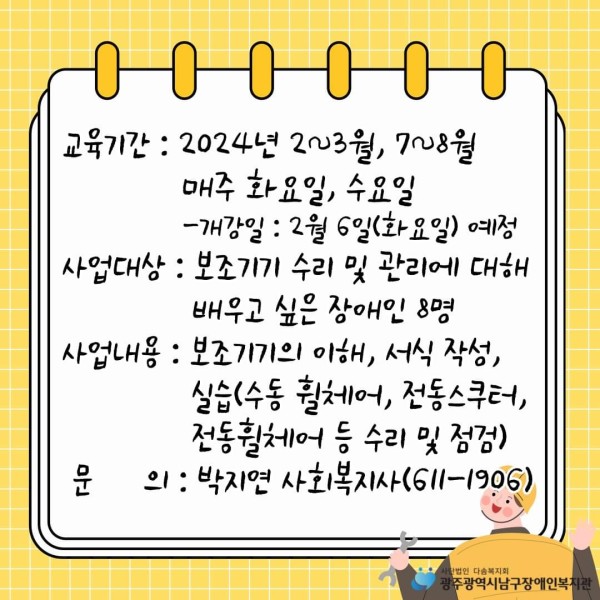 교육기간 : 2024년 2~3월, 7~8월
매주 화요일, 수요일
-개강일 : 2월 6일(화요일) 예정
사업대상 : 보조기기 수리 및 관리에 대해
배우고 싶은 장애인 8명
사업내용 : 보조기기의 이해, 서식 작성,
실습(수동 휠체어, 전동스쿠터,
전동휠체어 등 수리 및 점검)
문 의 : 박지연 사회복지사(611-1906)
사단법인 다솜복지회
광주광역시남구장애인복지관